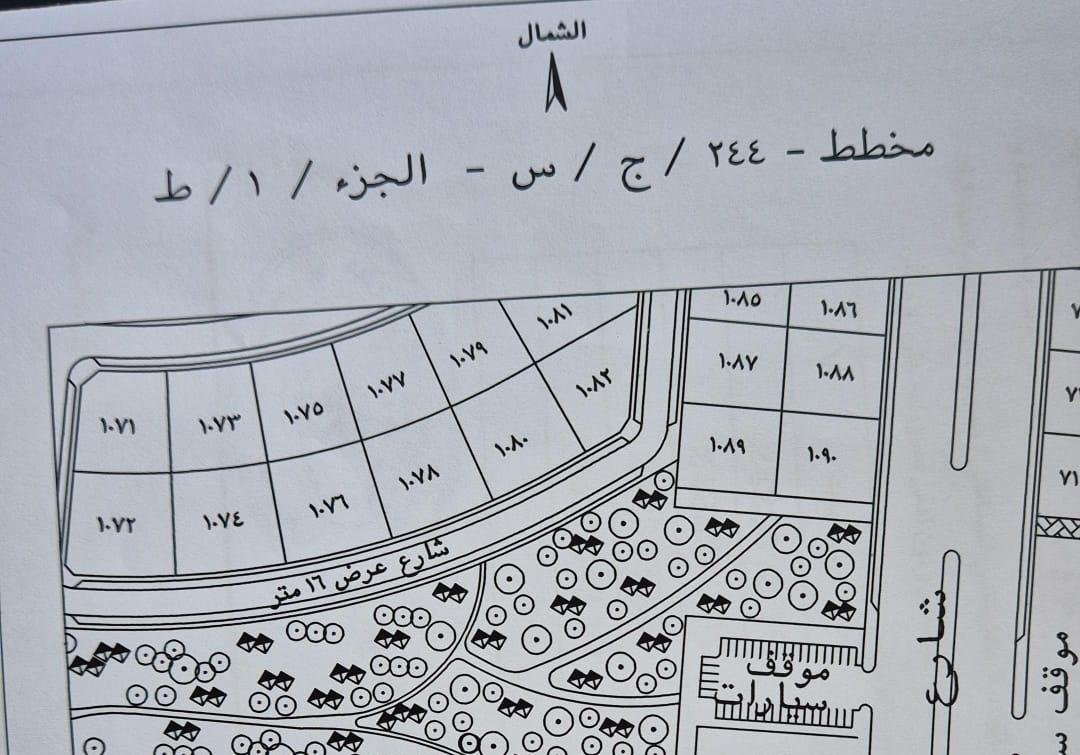 الشمال
مخطط - ٢٤٤ / ج / س - الجزء / ١ / ط
١٠٨١
١٠٨٥
١٠٨٦
١٠٧٩
١٠٧٧
١٠٧٥
١٠٧٣
١٠٧١
١٠٨٢
١٠٨٧
١٠٨٨
١٠٨٠
١٠٧٨
١٠٧٦
١٠٧٤
١٠٧٢
١٠٨٩
١٠٩٠
٧١
شارع عرض ١٦ متر
شارع
موقف
سيارات
موقف